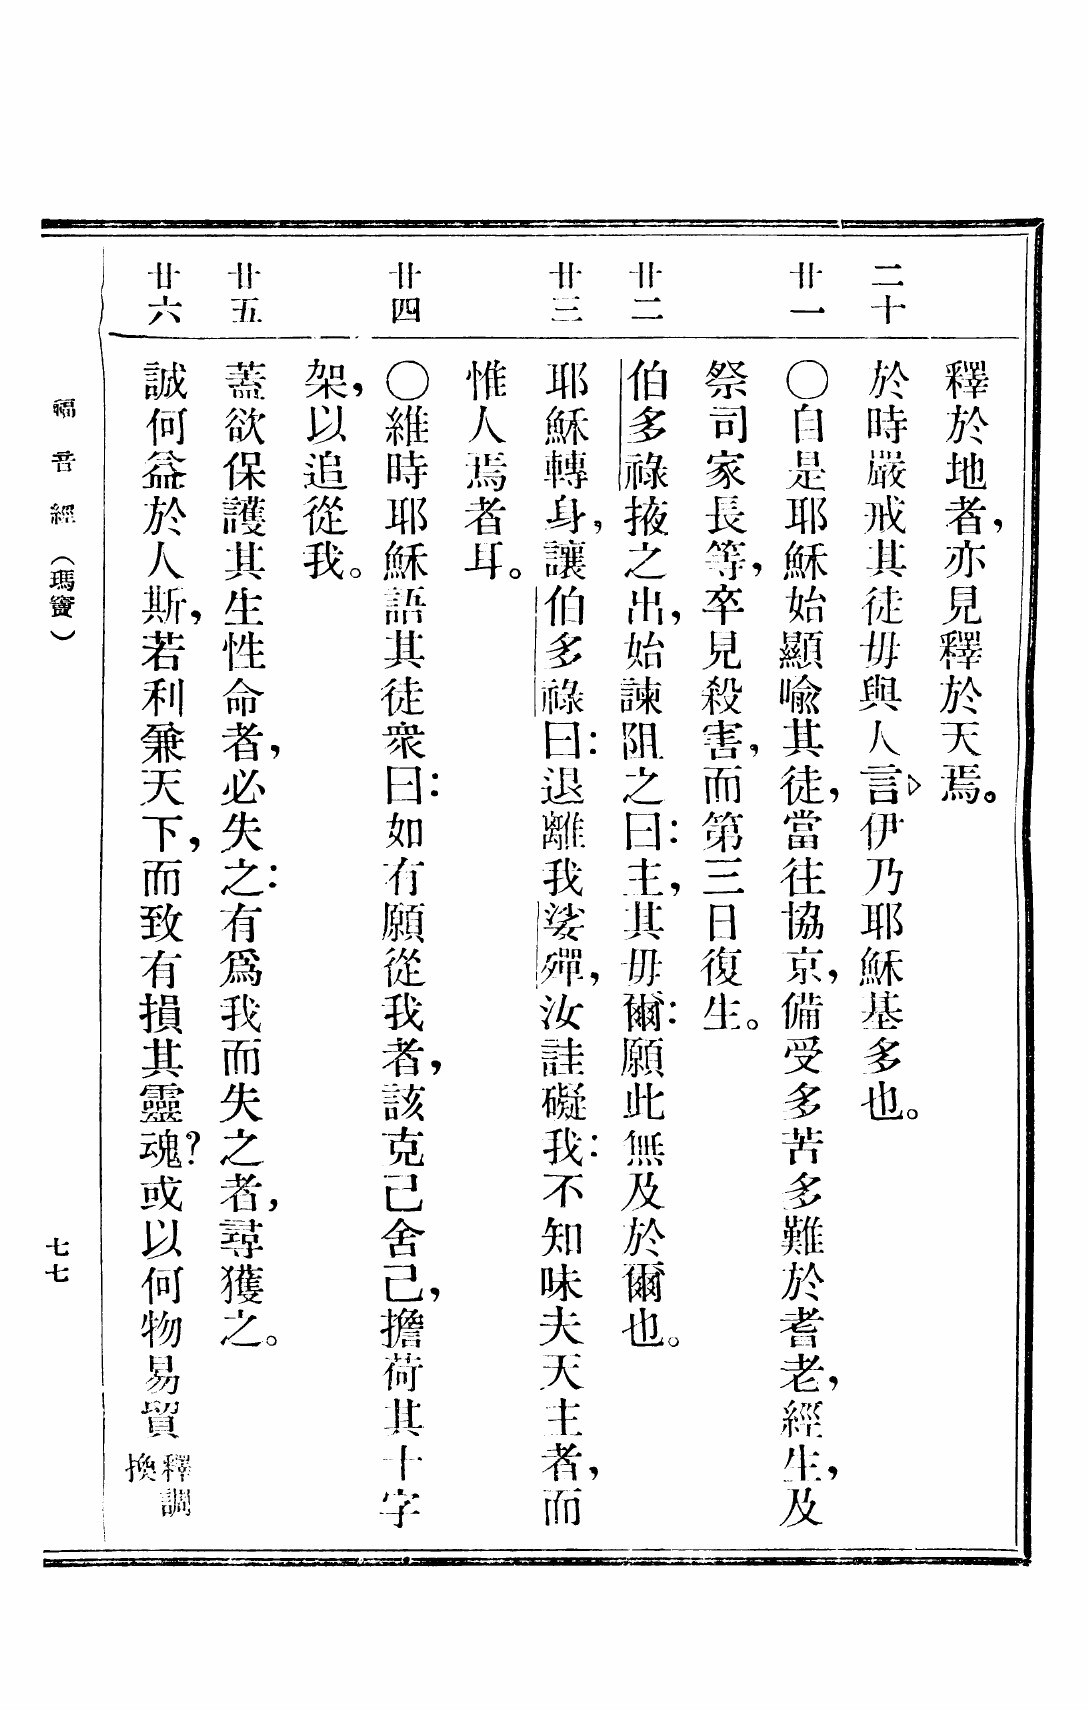 釋於地者，亦見釋於天焉。
二十
於時嚴戒其徒毋與人言，伊乃耶穌基多也。
廿一
〇自是耶穌始顯喩其徒，當往協京，備受多苦多難於耆老，經生，及
祭司家長等，卒見殺害，而第三日復生。
廿二
伯多祿掖之出，始諫阻之曰：主，其毋爾：願此無及於爾也。
廿三
耶穌轉身，讓伯多祿曰：退離我娑殫，汝詿礙我：不知味夫天主者，而
惟人焉者耳。
廿四
〇維時耶穌語其徒衆曰：如有願從我者，該克己舍己，擔荷其十字
架，以追從我。
廿五
蓋欲保護其生性命者，必失之：有爲我而失之者，尋獲之。
廿六
誠何益於人斯，若利兼天下，而致有損其靈魂？或以何物易貿釋調換
福音經（瑪竇）
七七